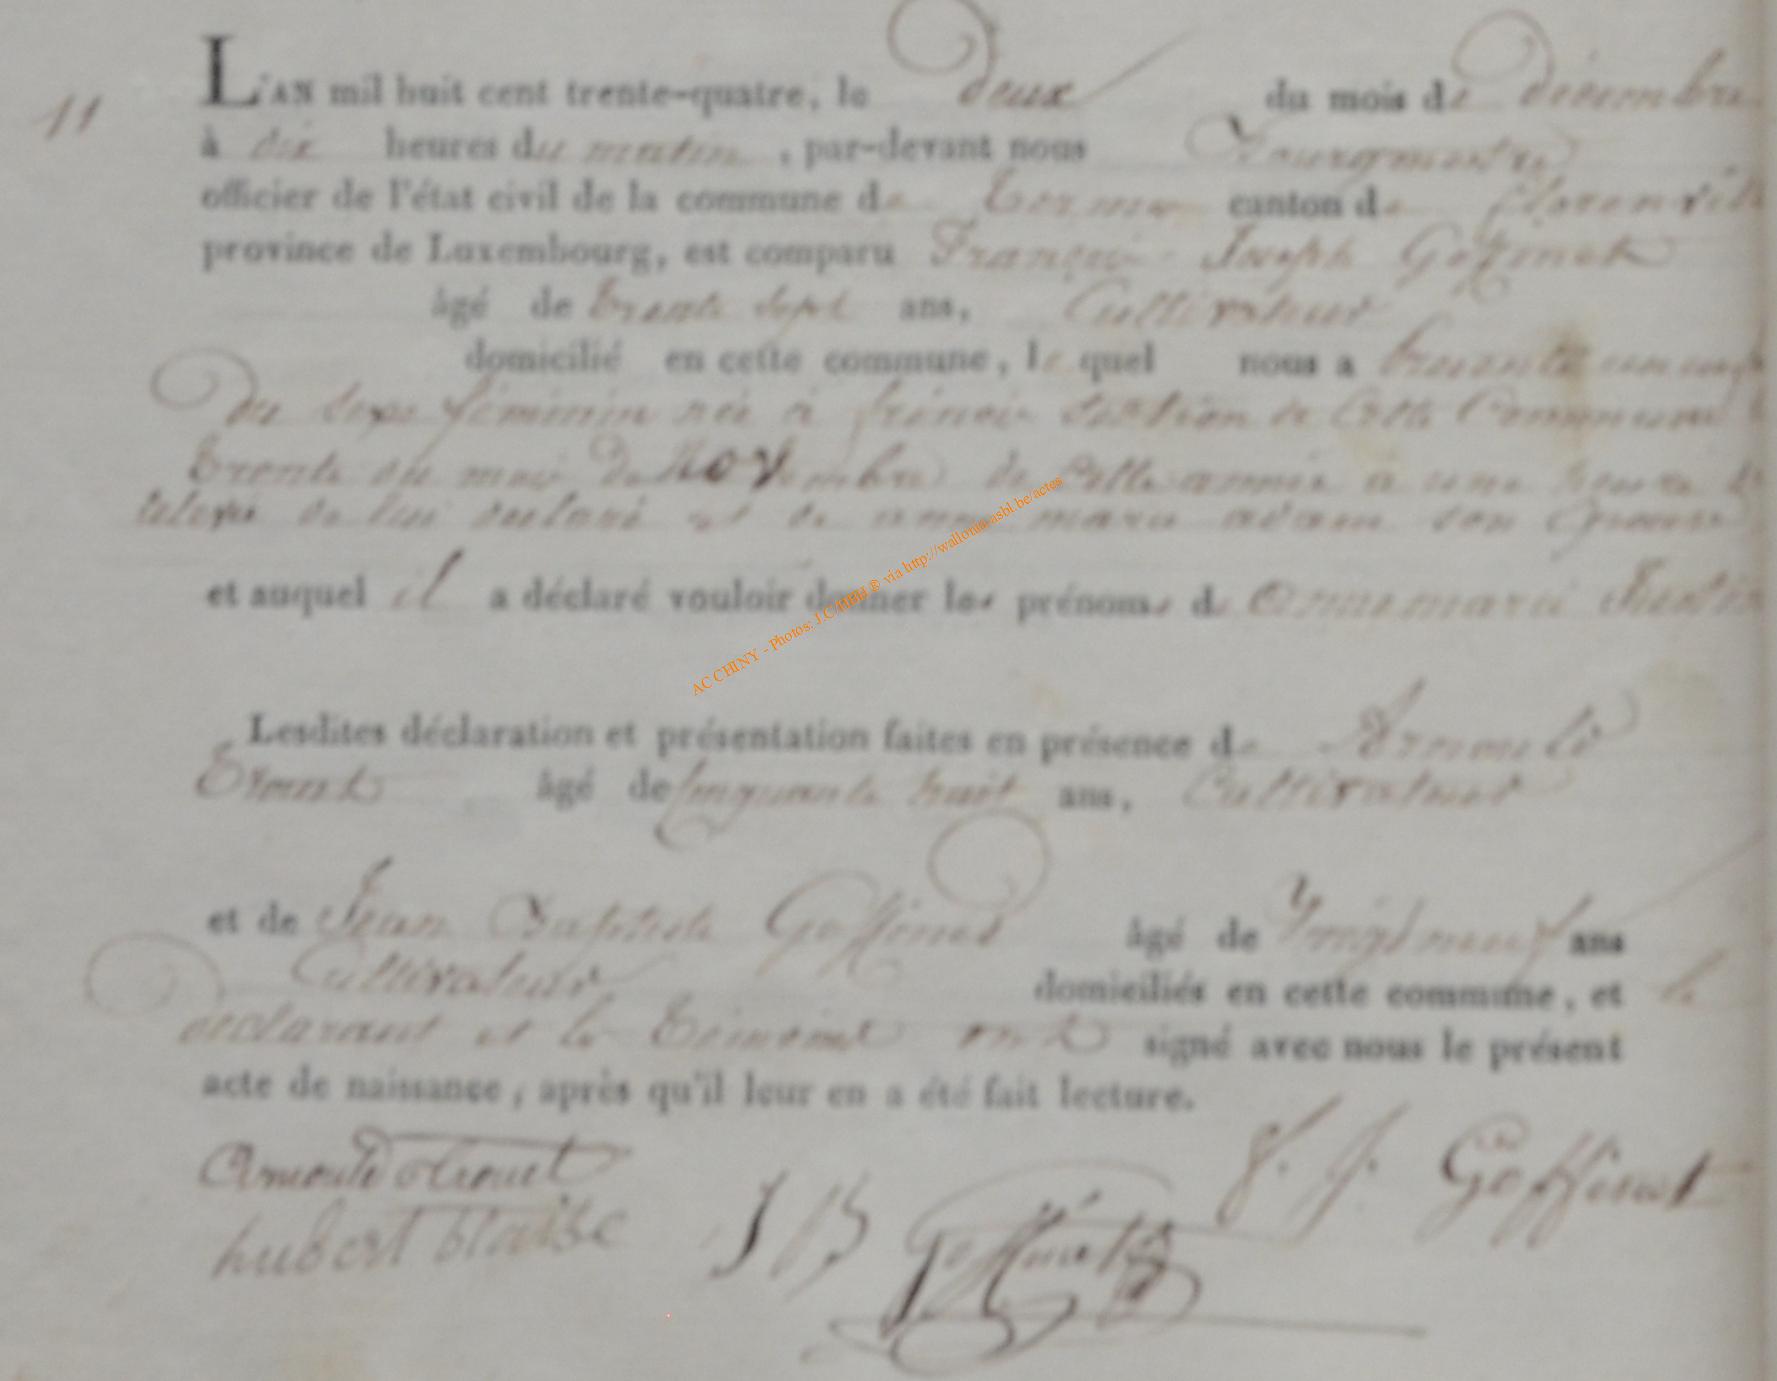 L'AN mil huit cent trente-quatre, le deux du mois de décembre
11
à dix heures du matin, par-devant nous Bourgmestre
officier de l'état civil de la commune de Termes canton de florenville
province de Luxembourg, est comparu François Joseph Goffinet
âgé de trente sept ans, Cultivateur
domicilié en cette commune, le quel nous a présenté un enfant
du sexe féminin née à frénois section de cette Commune le
trente du mois de Novembre de cette année à une heure de
de lui déclaré et de anne marie adam son Epouse
et auquel il a déclaré vouloir donner les prénoms de anne marie
Lesdites déclaration et présentation faites en présence de Arnould
âgé de cinquante huit ans, Cultivateur
et de Jean Baptiste Goffinet âgé de Vingt neuf ans
Cultivateur domiciliés en cette commune, et le
déclarant et les témoins ont signé avec nous le présent
acte de naissance, après qu'il leur en a été fait lecture.
Arnould F. J. Goffinet
hubert blaise J B Goffinet
AC CHINY - Photos: J.C. ® via http://wallonia-asbl.be/actes